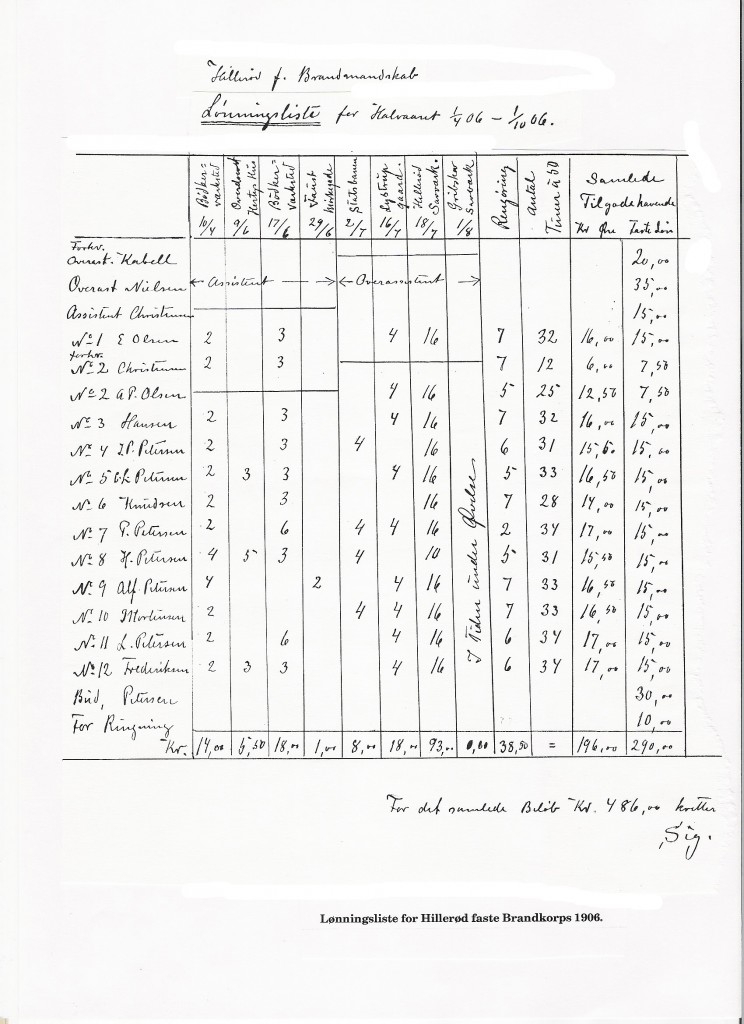 Hillerød f. Brandmandskab
Lønningsliste for Halvaaret 1/4 06 – 1/10 06.
Bødker= værksted 10/4 Hertz's Hus 9/6 Bødker= værksted 17/6 Faust 29/6 Statsbanen 2/7 Lystrup gaard. 16/7 Hillerød Savværk. 18/7 Gribskov Savværk 1/8 Rengøring Antal Timer à 50 Samlede Tilgodehavende Kr Øre Faste Løn
Forhv. Overast. Kabell 20,00
Overast Nielsen ← Assistent → ← Overassistent → 35,00
Assistent Christensen 15,00
No 1 E Olsen 2 3 4 16 7 32 16,00 15,00
forhv. No 2 Christensen 2 3 7 12 6,00 7,50
No 2 A P. Olsen 4 16 5 25 12,50 7,50
No 3 Hansen 2 3 4 16 7 32 16,00 15,00
No 4 I.P. Petersen 2 3 4 16 6 31 15,50 15,00
No 5 Petersen 2 3 3 4 16 5 33 16,50 15,00
No 6 Knudsen 2 3 16 7 28 14,00 15,00
No 7 P. Petersen 2 6 4 4 16 2 34 17,00 15,00
No 8 H. Petersen 4 5 3 4 10 5 31 15,50 15,00
No 9 Alf. Petersen 4 2 4 16 7 33 16,50 15,00
No 10 Mortensen 2 4 4 16 7 33 16,50 15,00
No 11 L. Petersen 2 6 4 16 6 34 17,00 15,00
No 12 Frederiksen 2 3 3 4 16 6 34 17,00 15,00
I Tiden under Øvelse
Bud, Petersen 30,00
For Ringning 10,00
Kr. 14,00 5,50 18,00 1,00 8,00 18,00 93,00 0,00 38,50 = 196,00 290,00
For det samlede Beløb Kr. 486,00 kvitter
Sig.
Lønningsliste for Hillerød faste Brandkorps 1906.